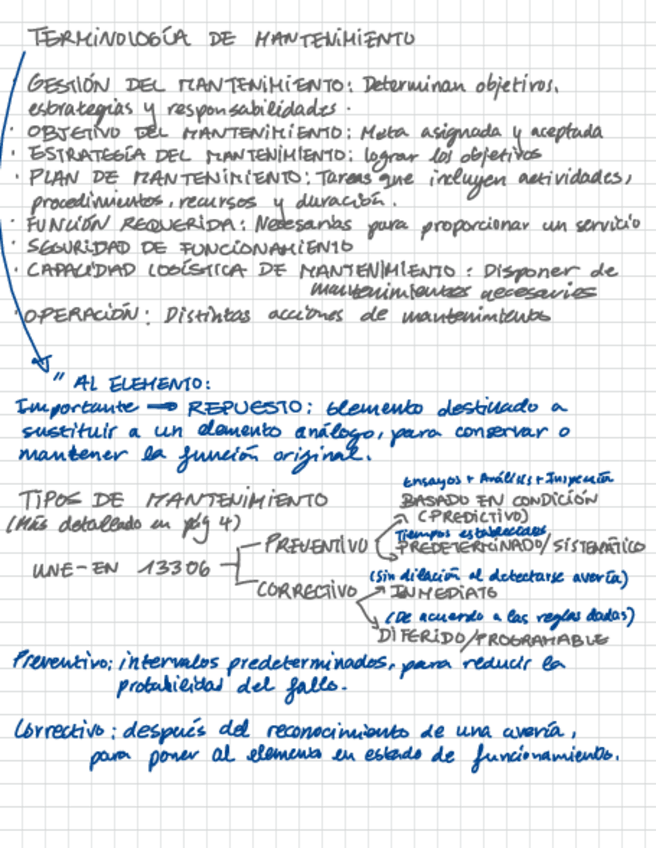 TERMINOLOGÍA DE MANTENIMIENTO
GESTIÓN DEL MANTENIMIENTO: Determinan objetivos,
estrategias y responsabilidades.
· OBJETIVO DEL MANTENIMIENTO: Meta asignada y aceptada
· ESTRATEGIA DEL MANTENIMIENTO: lograr los objetivos
· PLAN DE MANTENIMIENTO: Tareas que incluyen actividades,
procedimientos, recursos y duración.
· FUNCIÓN REQUERIDA: Necesarias para proporcionar un servicio
· SEGURIDAD DE FUNCIONAMIENTO
· CAPACIDAD LOGÍSTICA DE MANTENIMIENTO: Disponer de
mantenimientos necesarios
· OPERACIÓN: Distintas acciones de mantenimiento
" AL ELEMENTO:
Importante → REPUESTO: Elemento destinado a
sustituir a un elemento análogo, para conservar o
mantener la función original.
Ensayos + Análisis + Inspección
TIPOS DE MANTENIMIENTO BASADO EN CONDICIÓN
(Más detallado en pág 4) (PREDICTIVO)
Tiempos establecidos
PREVENTIVO PREDETERMINADO/SISTEMÁTICO
UNE-EN 13306
(Sin dilación al detectarse avería)
CORRECTIVO INMEDIATO
(De acuerdo a las reglas dadas)
DIFERIDO/PROGRAMABLE
Preventivo: intervalos predeterminados, para reducir la
probabilidad del fallo.
Correctivo: después del reconocimiento de una avería,
para poner al elemento en estado de funcionamiento.